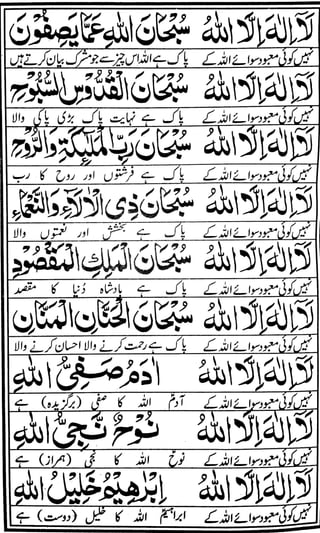 لَآ اِلٰهَ اِلَّا اللهُ سُبْحَانَ اللهِ عَمَّا يَصِفُوْنَ
نہیں کوئی معبود سوائے اللہ کے پاک ہے اللہ اس چیز سے جو مشرک بیان کرتے ہیں
لَآ اِلٰهَ اِلَّا اللهُ سُبْحَانَ الْقُدُّوْسِ السُّبُّوْحِ
نہیں کوئی معبود سوائے اللہ کے پاک ہے نہایت پاک بڑی پاکی والا
لَآ اِلٰهَ اِلَّا اللهُ سُبْحَانَ رَبِّ الْمَلٰٓئِكَةِ وَالرُّوْحِ
نہیں کوئی معبود سوائے اللہ کے پاک ہے فرشتوں اور روح کا رب
لَآ اِلٰهَ اِلَّا اللهُ سُبْحَانَ ذِي الْاٰلَآءِ وَالنَّعْمَآءِ
نہیں کوئی معبود سوائے اللہ کے پاک ہے بخشش اور نعمتوں والا
لَآ اِلٰهَ اِلَّا اللهُ سُبْحَانَ الْمَلِكِ الْمَقْصُوْدِ
نہیں کوئی معبود سوائے اللہ کے پاک ہے بادشاہ دُنیا کا مقصد
لَآ اِلٰهَ اِلَّا اللهُ سُبْحَانَ الْحَنَّانِ الْمَنَّانِ
نہیں کوئی معبود سوائے اللہ کے پاک ہے رحمت کرنے والا احسان کرنے والا
لَآ اِلٰهَ اِلَّا اللهُ اٰدَمُ صَفِيُّ اللهِ
نہیں کوئی معبود سوائے اللہ کے آدمؑ اللہ کا صفی (برگزیدہ) ہے
لَآ اِلٰهَ اِلَّا اللهُ نُوْحٌ نَّجِيُّ اللهِ
نہیں کوئی معبود سوائے اللہ کے نوحؑ اللہ کا نجی (ہمراز) ہے
لَآ اِلٰهَ اِلَّا اللهُ اِبْرٰهِيْمُ خَلِيْلُ اللهِ
نہیں کوئی معبود سوائے اللہ کے ابراہیمؑ اللہ کا خلیل (دوست) ہے